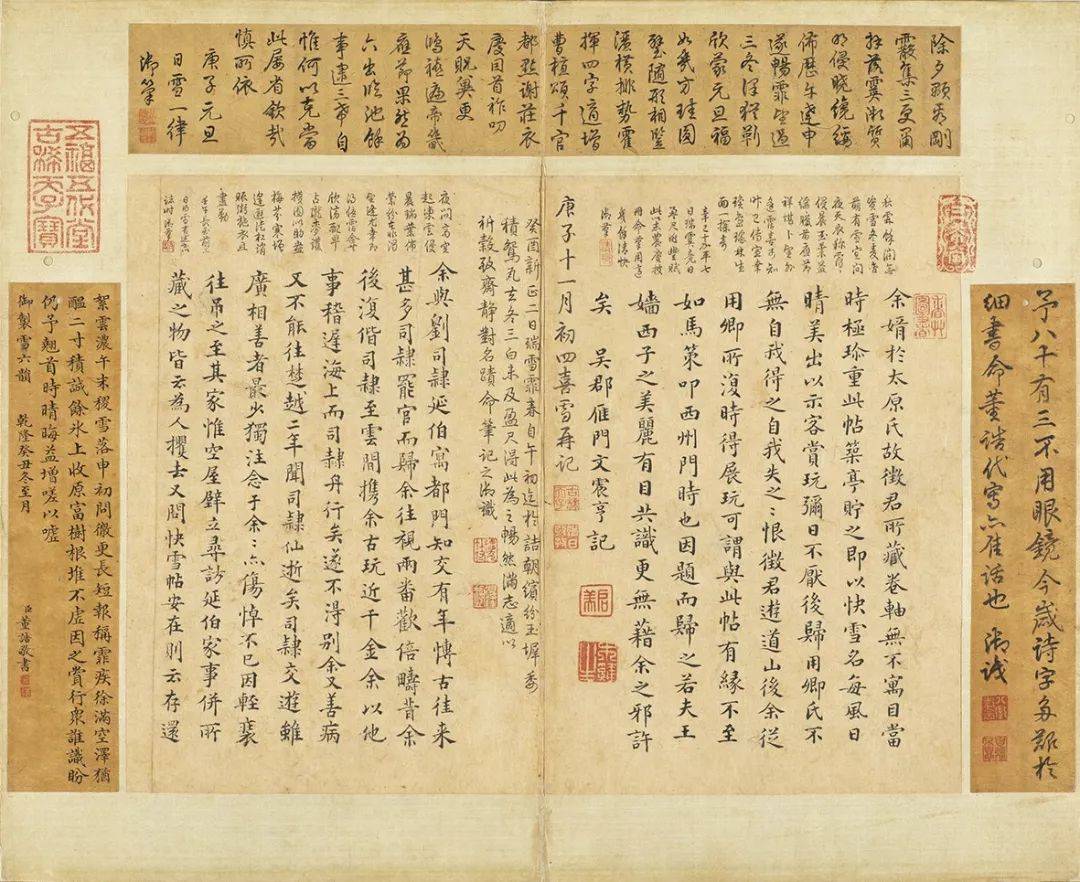 除夕看剛
霰集三更
霙漸質
明侵曉繞
佈歷午逮申
遂暢霏坐過
三冬釋靳
欣蒙元旦福
如幾方珪圓
璧適形相
橫排勢霍
揮四字適增
曹植頌千官
都點謝莊衣
慶因首祚叨
天貺冀更
鴻禧遍帝畿
應節果然為
六出臨池餘
事逮三希自
惟何以克當
此屬省欽哉
慎所依
庚子元旦
日雪一律
御筆
予八十有三不用眼鏡今歲詩字多艱於
細書命董誥代寫亦佳話也 御識
余婿於太原氏故徵君所藏卷軸無不寓目當
時極珍重此帖築亭貯之即以快雪名每風日
晴美出以示客賞玩彌日不厭後歸用卿氏不
無自我得之自我失之之恨徵君遊道山後余從
用卿所復時得展玩可謂與此帖有緣不至
如馬策叩西州門時也因題而歸之若夫王
嬙西子之美麗有目共識更無藉余之邪許
矣 吳郡雁門文震亨記
庚子十一月初四喜雪再記
癸酉新正二日瑞雪霏春自午初迄於詰朝繽紛玉墀委
積鴛瓦去冬三白未及盈尺得此為之暢然滿志適以
祈穀致齋靜對名蹟命筆記之御識
余與劉司隸延伯寓都門知交有年博古往來
甚多司隸罷官而歸余往視兩番歡倍疇昔余
後復偕司隸至雲間攜余古玩近千金余以他
事稽遲海上而司隸丹行矣遂不得別余又善病
又不能往楚越二年聞司隸仙逝矣司隸交遊雖
廣相善者最少獨注念于余余亦傷悼不已因輕裝
往吊之至其家惟空屋壁立尋訪延伯家事併所
藏之物皆云為人攫去又問快雪帖安在則云存還
絮雲濃午末稷雪落申初問徹更長短報稱霏疾徐滿空澤猶
醞二寸積誠餘氷上收原富樹根堆不虛因之賞行眾誰識盼
仍予翹首時晴晦益增嗟以噓
御製雪六韻 乾隆癸丑冬至月
臣董誥敬書
五福五代堂
古稀天子寶